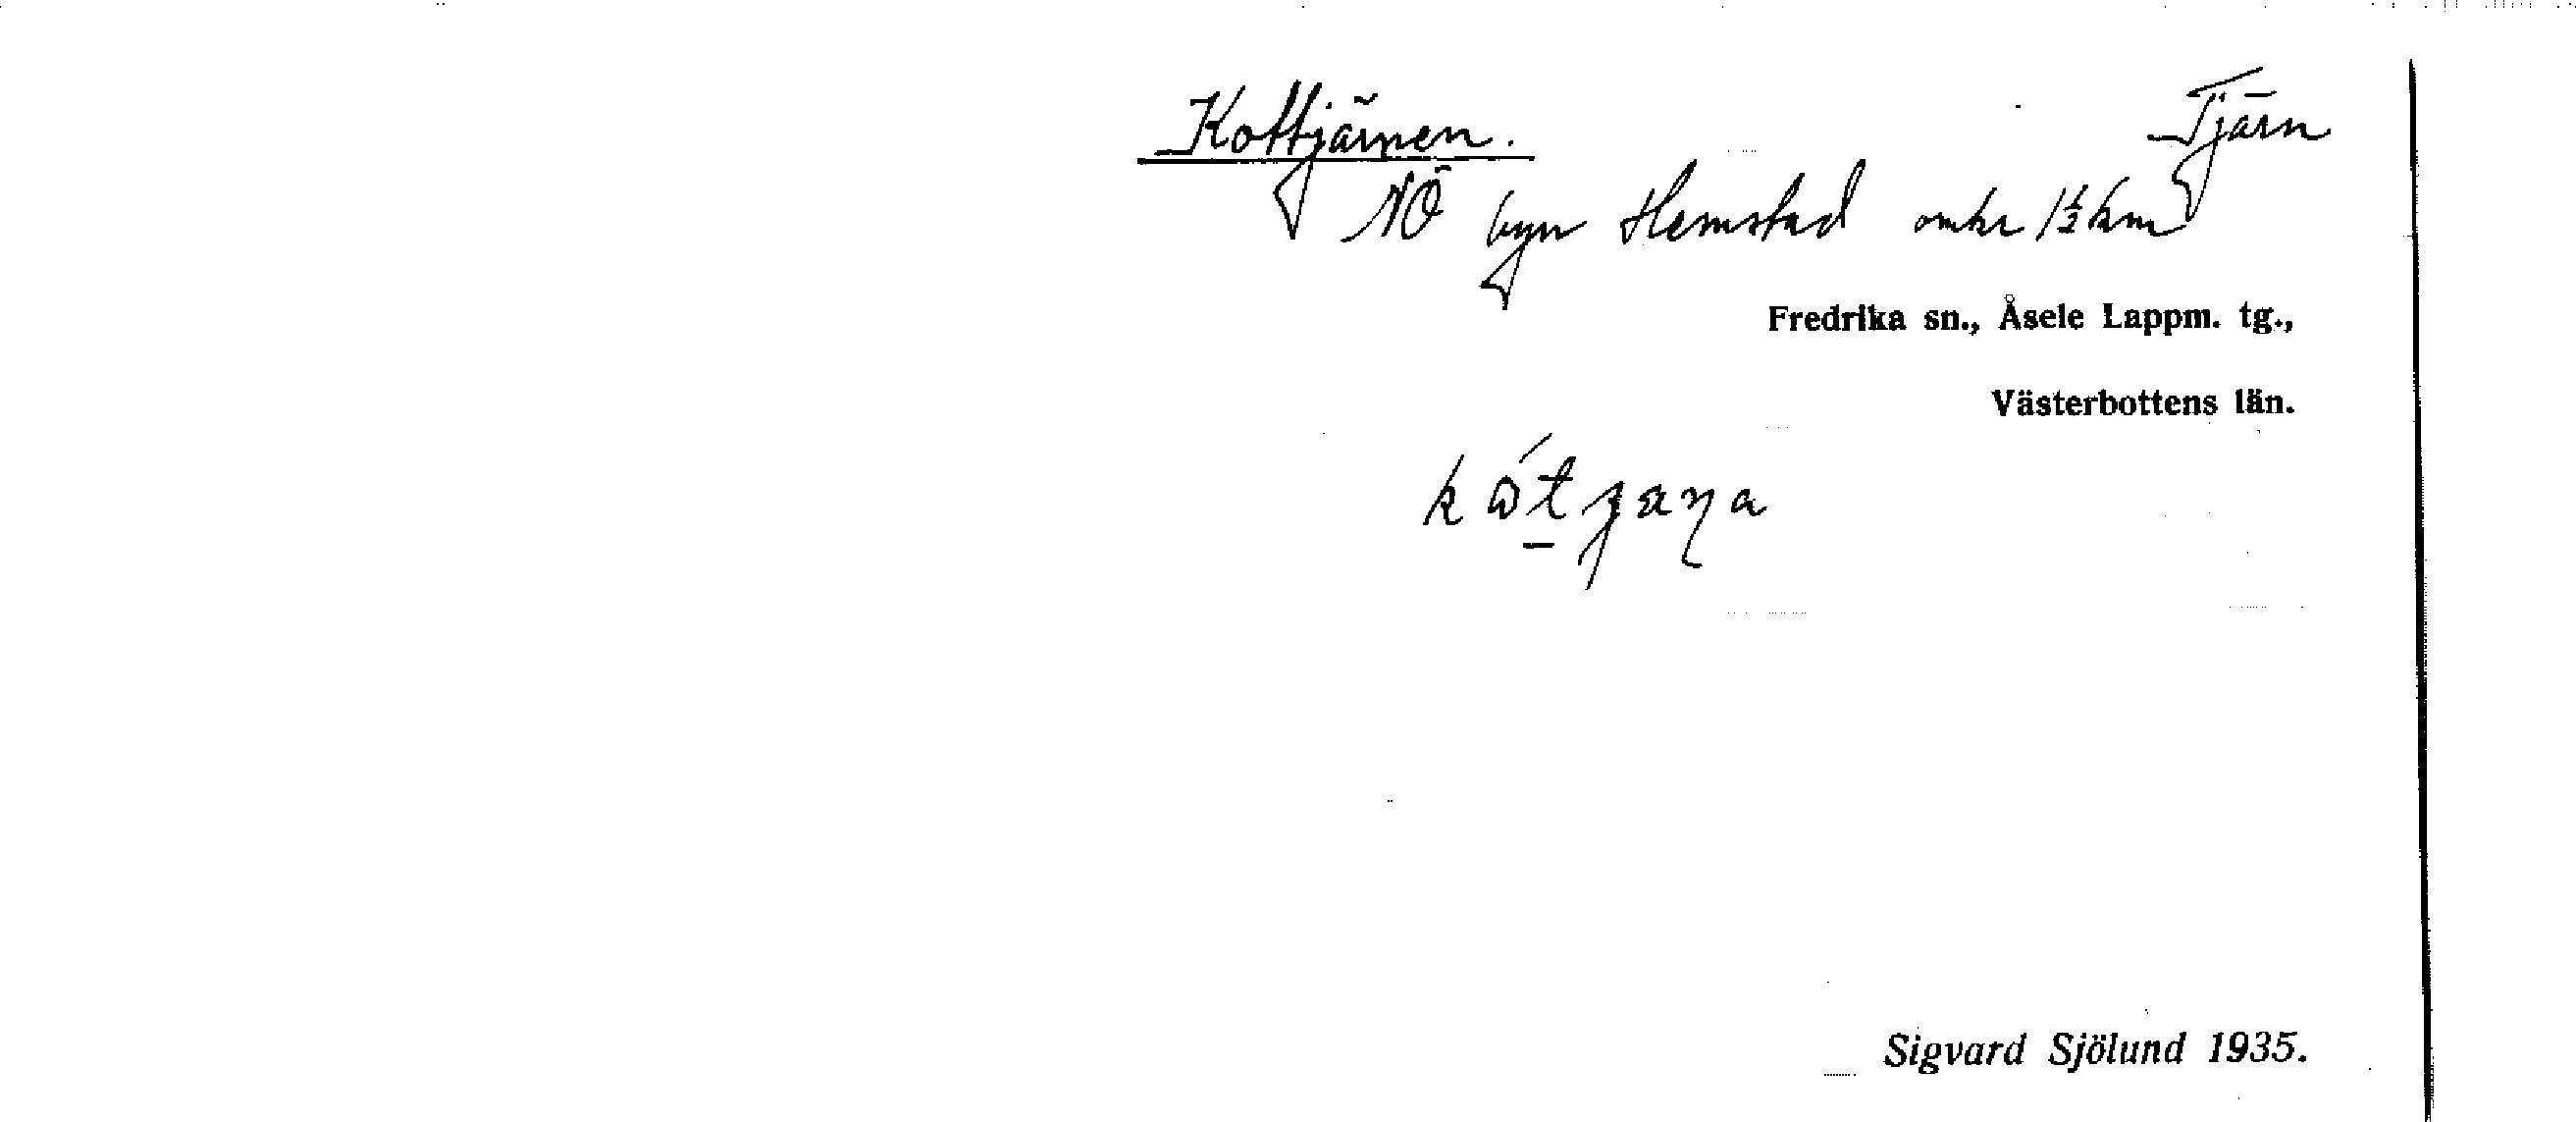 Kottjärnen. Tjärn
NÖ byn Hemstad omkr 1½ km
Fredrika sn., Åsele Lappm. tg.,
Västerbottens län.
Sigvard Sjölund 1935.